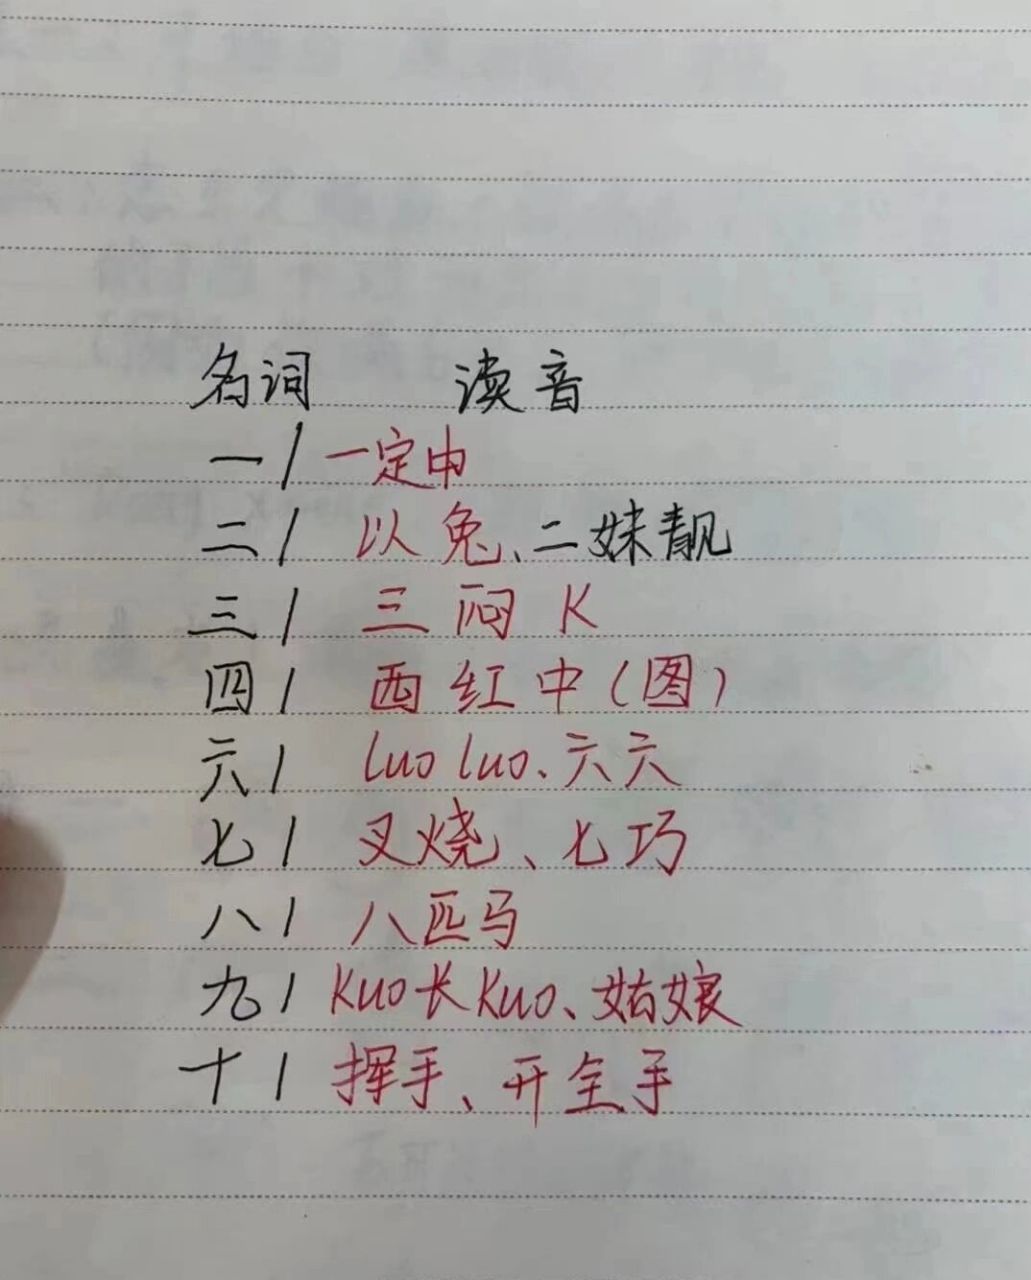 名词 读音
一/ 一定中
二/ 以兔、二妹靓
三/ 三闷K
四/ 西红中(图)
六/ luo luo、六六
七/ 叉烧、七巧
八/ 八匹马
九/ Kuo长Kuo、姑娘
十/ 挥手、开全手